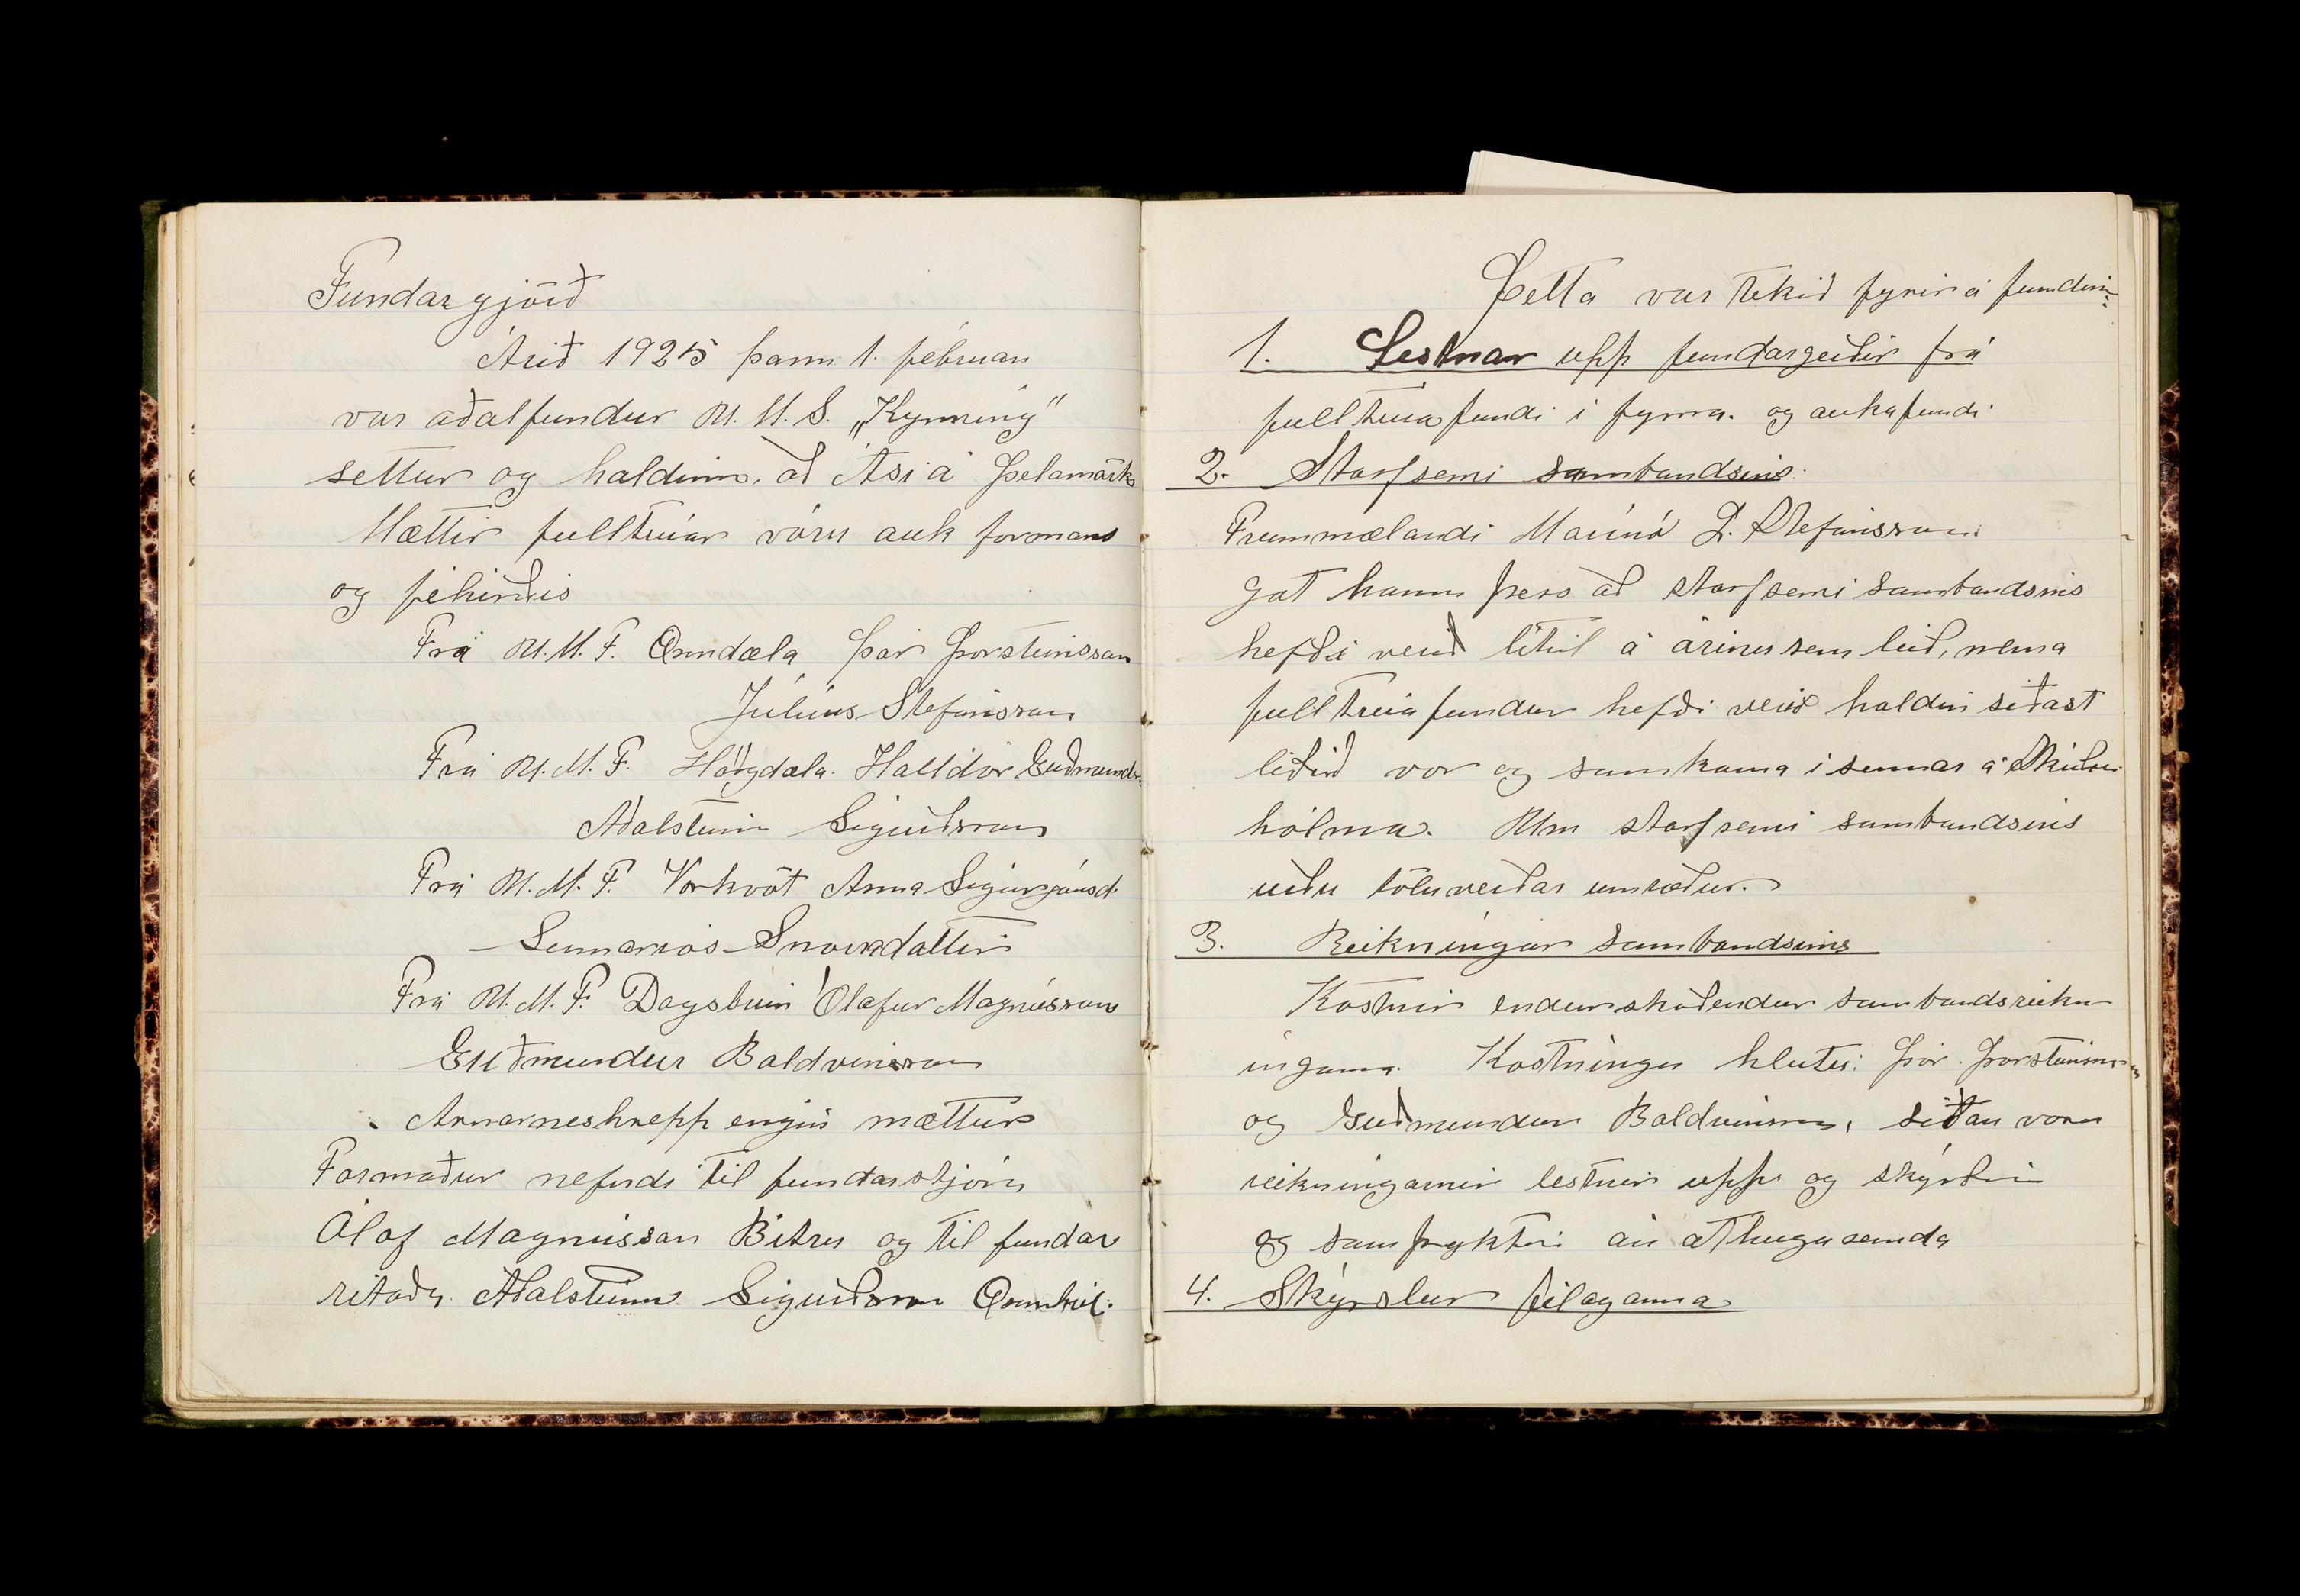 Fundargjörð
Árið 1925 þann 1. febrúar
var aðalfundur U.M.S. „Kynning"
settur og haldinn að Ási á Þelamörk
Mættir fulltrúar vóru auk formans
og féhirðis
Frá U.M.F. Öxndæla Þór Þorsteinsson
Júlíus Stefánsson
Frá U.M.F. Hörgdæla. Halldór Guðmunds.
Aðalsteinn Sigurðsson
Frá U.M.F. Vorhvöt Anna Sigurjónsd.
Snorradóttir
Frá U.M.F. Dagsbrún Ólafur Magnússon
Guðmundur Baldvinsson
Arnarneshrepp engin mættur
Formaður nefndi til fundarstjóra
Ólaf Magnússon Bitru og til fundar
ritara Aðalstein Sigurðsson Öxnhól.
Þetta var tekið fyrir á fundin:
1. Lestnar upp fundargerðir frá
fulltrúafundi í fyrra. og aukafundi
2. Starfsemi sambandsins.
Frummælandi Marinó L. Stefánsson.
gat hann þess að starfsemi sambandsins
hefði verið lítil á árinu sem leið, nema
fulltrúafundur hefði verið haldin síðast
liðið vor og samkoma í sumar á Skipa
hólma. Um starfsemi sambandsins
urðu töluverðar umræður.
3. Reikningar sambandsins
Kostnir endurskoðendur sambandsreikn
ingana. Kostningu hlutu: Þór Þorsteinsson
og Guðmundur Baldvinsson, síðan voru
reikningarnir lestnir upp og skýrðir
og samþyktir án athugasemda
4. Skýrslur félaganna